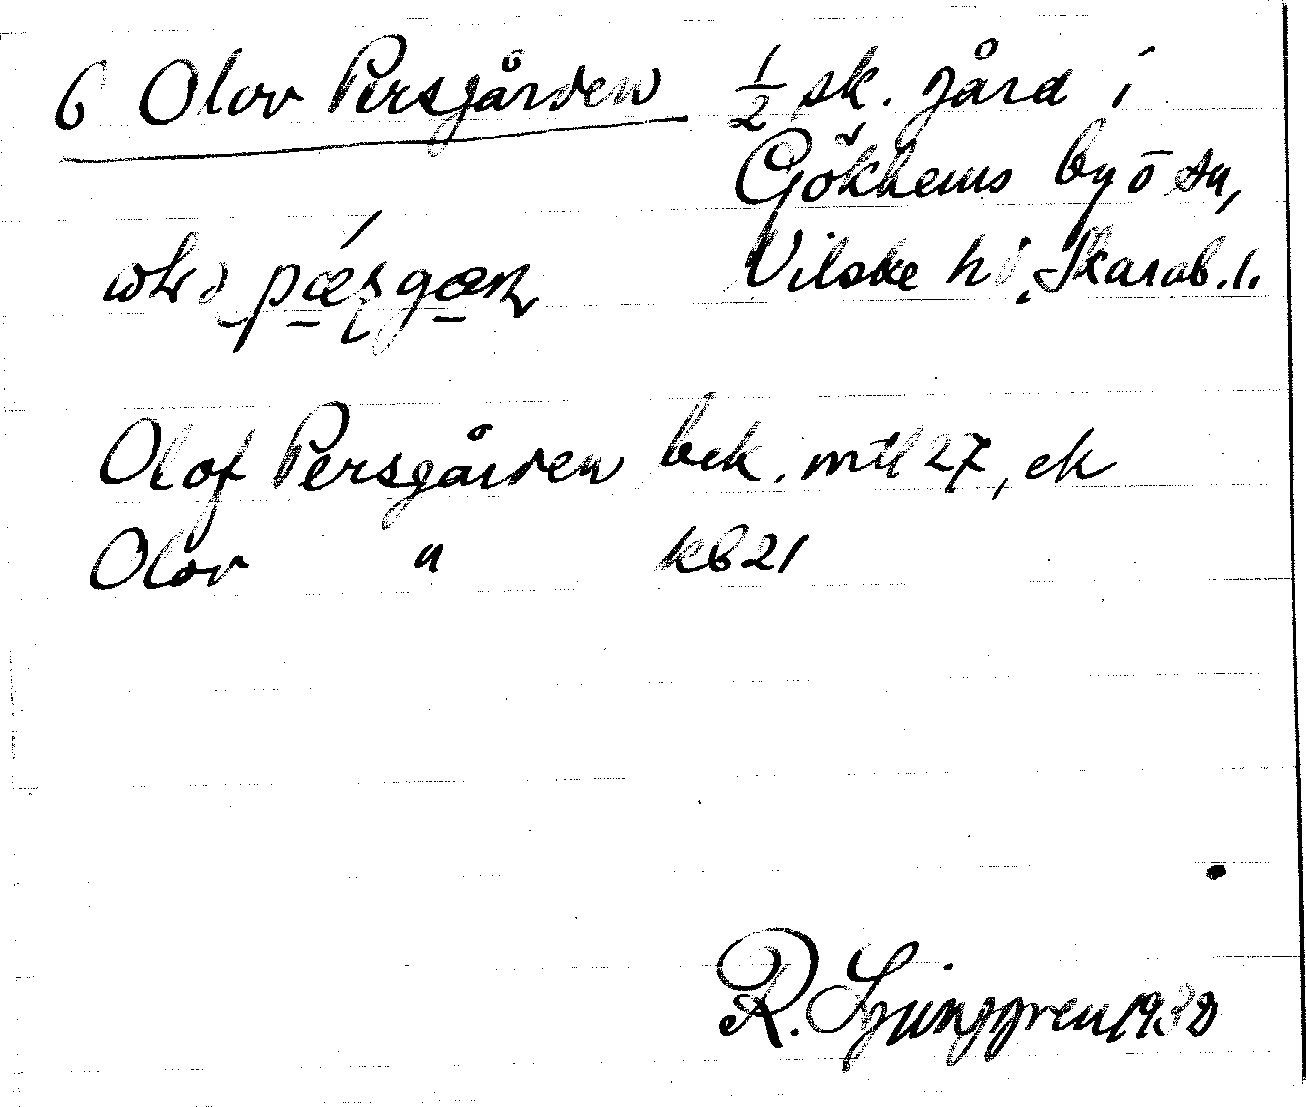 6 Olov Persgården ½ sk. gård i
Gökhems by o sn,
Vilske hd, Skarab. l.
Olof Persgården bek. mtl 27, ek
Olov " kb 21
R. Ljunggren